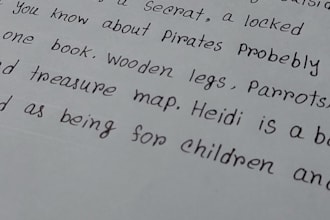 a Secrat, a locked
You know about Pirates Probebly
one book. Wooden legs, Parrots,
treasure map. Heidi is a b
as being for children an